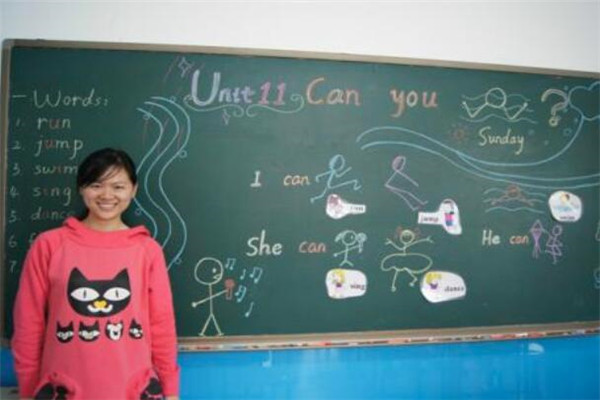 Unit 11 Can you
Words:
1. run
2. jump
3. swim
4. sing
5. dance
6
7
Sunday
I can
run
jump
She can
sing
dance
He can